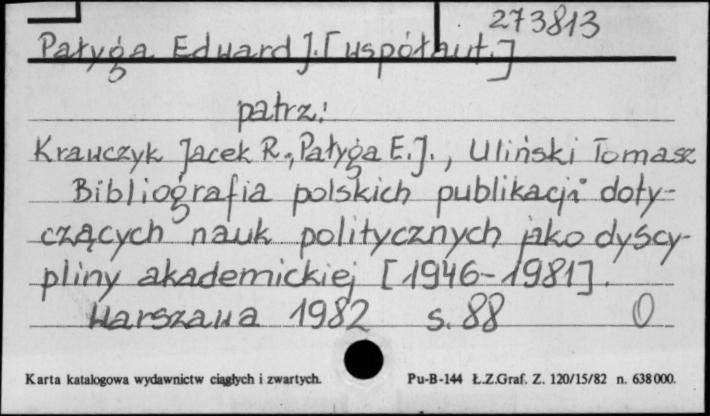 273813
Pałyga Eduard J. [współaut.]
patrz:
Krawczyk Jacek R., Pałyga E.J., Uliński Tomasz
Bibliografia polskich publikacji doty-
czących nauk politycznych jako dyscy-
pliny akademickiej [1946-1981].
Warszawa 1982 s. 88 0
Karta katalogowa wydawnictw ciągłych i zwartych. Pu-B-144 Ł.Z.Graf. Z. 120/15/82 n. 638000.